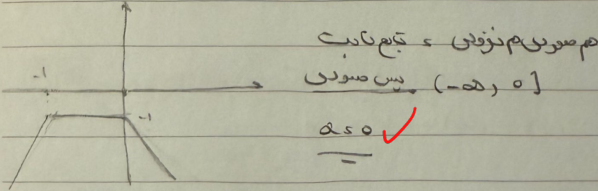 هم صعودی هم نزولی = تابع ثابت
(-∞, 0] پس صعودی
a = 0
-1
-1